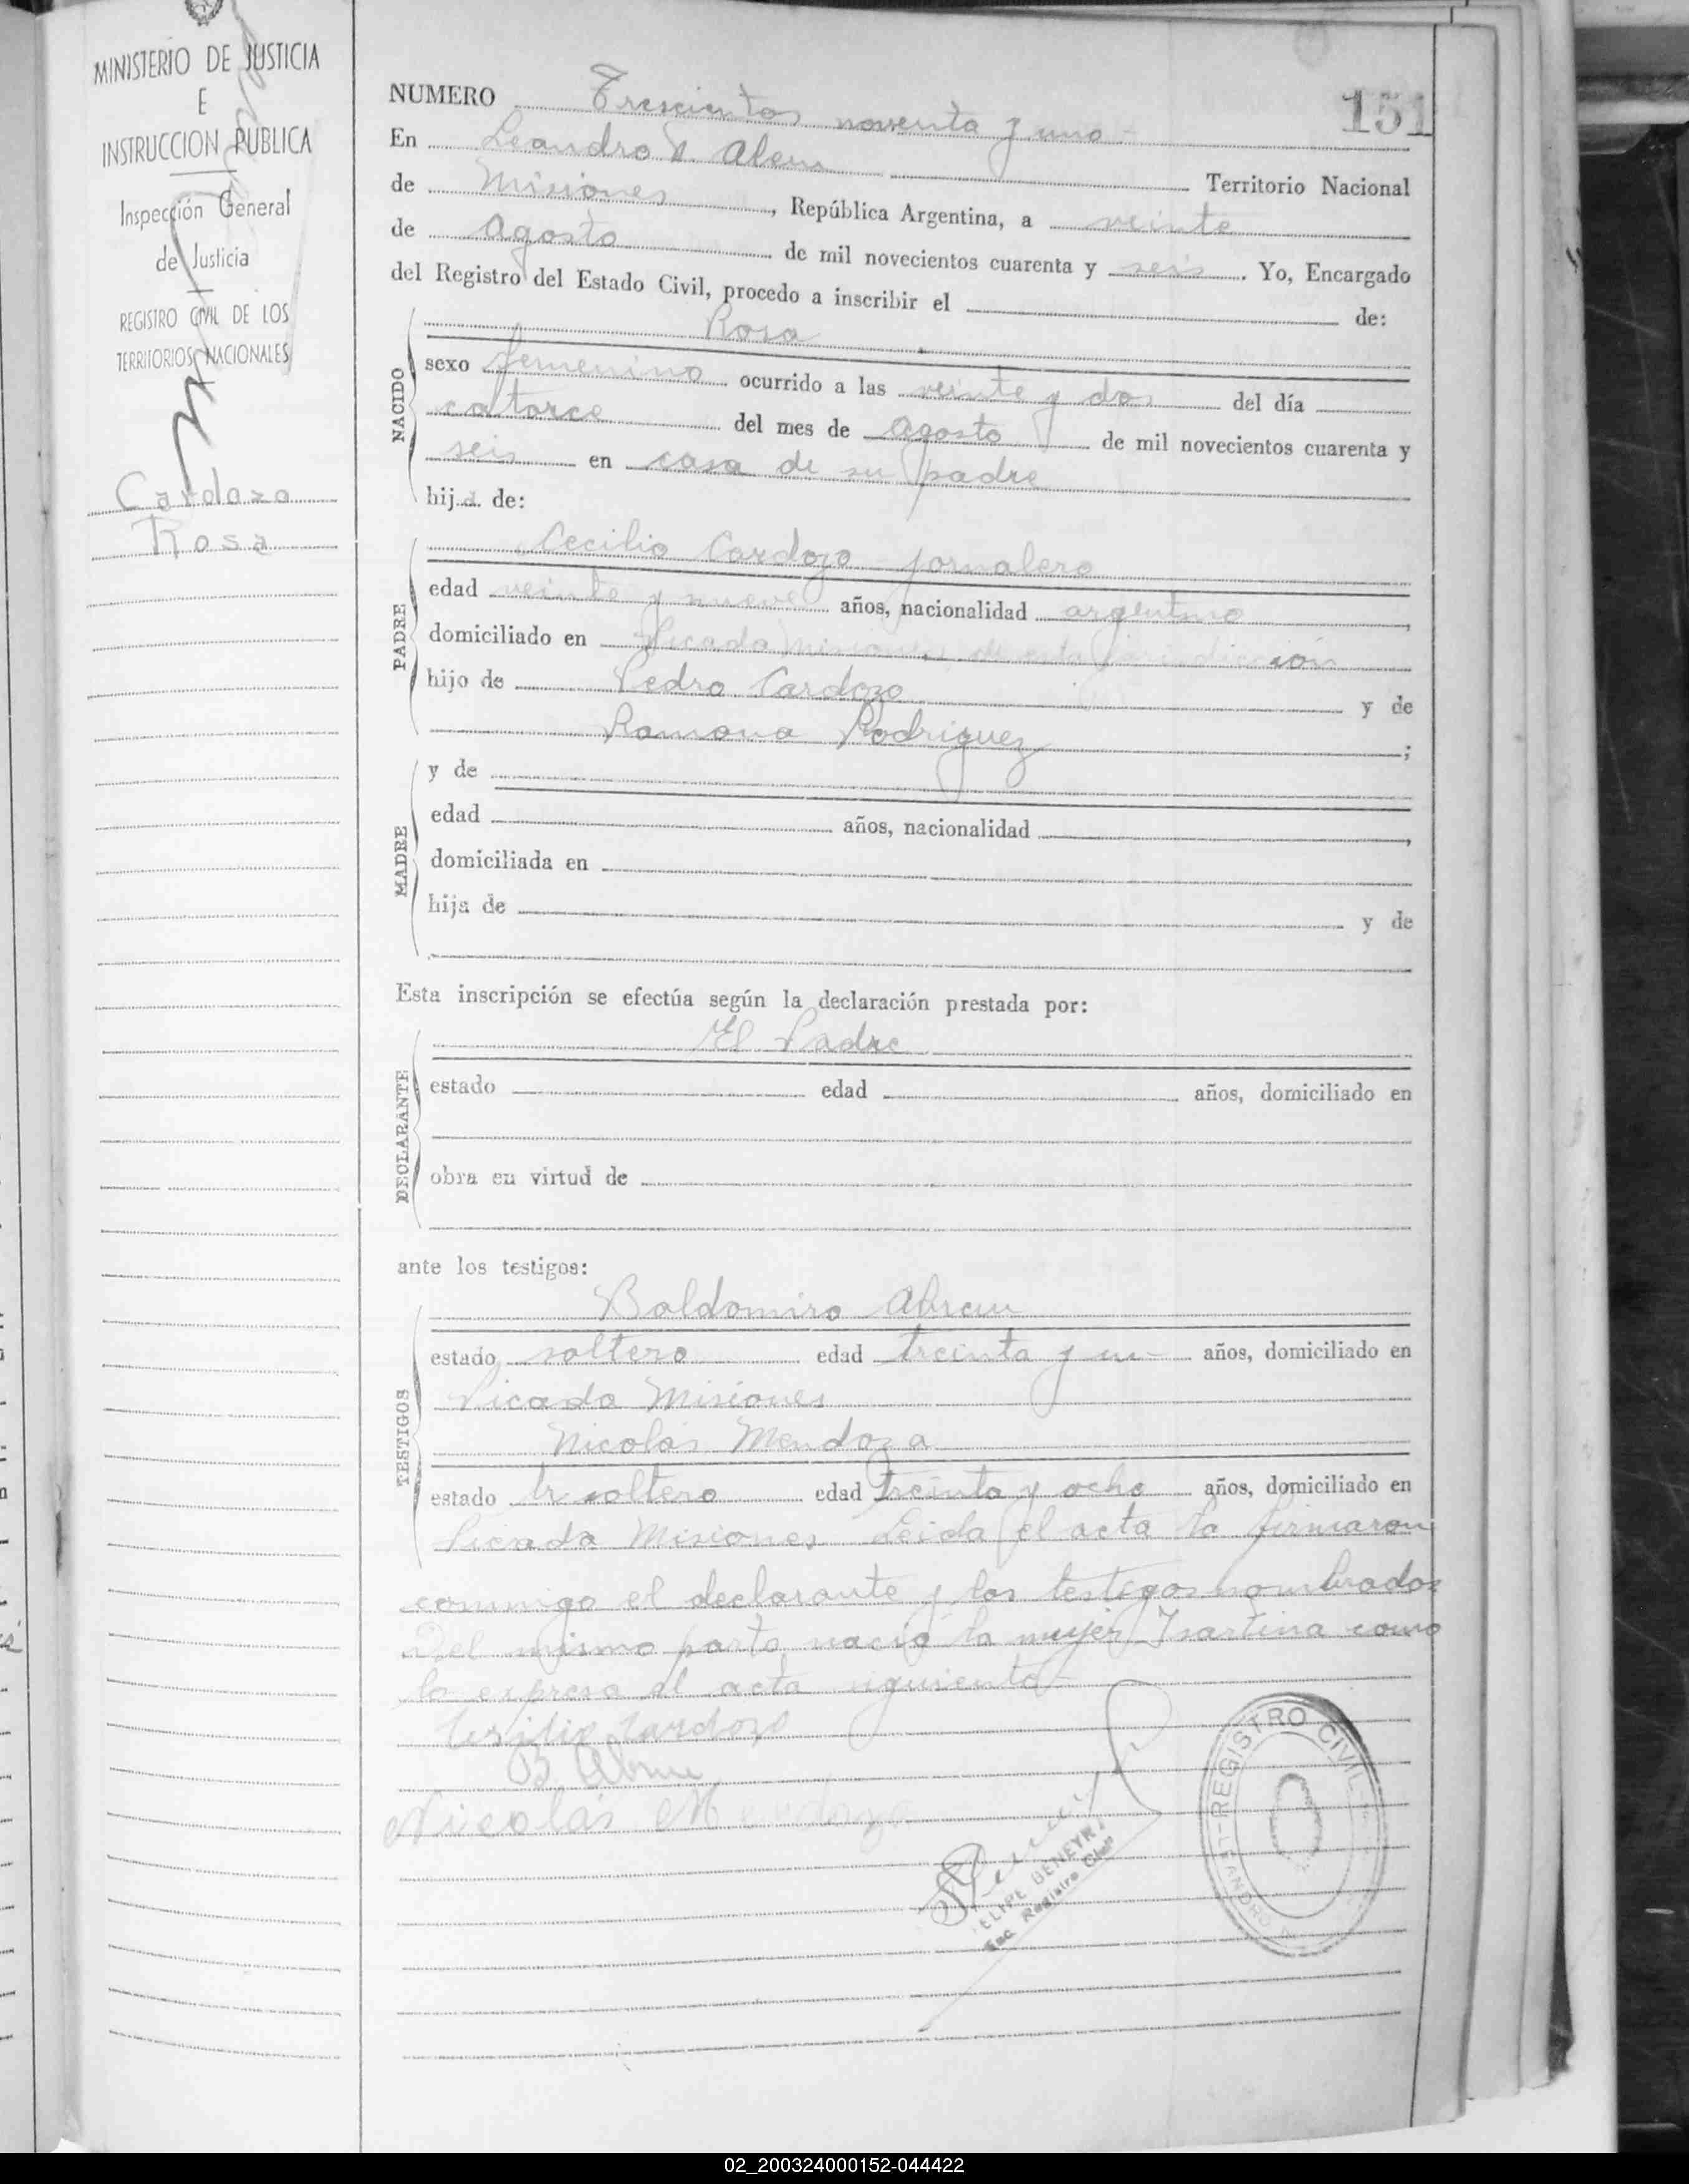 MINISTERIO DE JUSTICIA
E
INSTRUCCION PUBLICA
Inspección General
de Justicia
REGISTRO CIVIL DE LOS
TERRITORIOS NACIONALES
Cardozo
Rosa
151
NUMERO Trescientos noventa y uno
En Leandro N. Alem
de Misiones, República Argentina, a veinte Territorio Nacional
de Agosto de mil novecientos cuarenta y seis. Yo, Encargado
del Registro del Estado Civil, procedo a inscribir el de:
NACIDO
Rosa
sexo femenino ocurrido a las veinte y dos del día
catorce del mes de Agosto de mil novecientos cuarenta y
seis en casa de su padre
hij.a. de:
PADRE
Cecilio Cardozo jornalero
edad veinte y nueve años, nacionalidad argentino,
domiciliado en Picada Misiones de esta jurisdicción
hijo de Pedro Cardozo y de
Ramona Rodriguez;
MADRE
y de
edad años, nacionalidad,
domiciliada en
hija de y de
Esta inscripción se efectúa según la declaración prestada por:
DECLARANTE
El Padre
estado edad años, domiciliado en
obra en virtud de
ante los testigos:
TESTIGOS
Baldomiro Abreu
estado soltero edad treinta y un años, domiciliado en
Picada Misiones
Nicolás Mendoza
estado soltero edad treinta y ocho años, domiciliado en
Picada Misiones Leida el acta la firmaron
conmigo el declarante y los testigos nombrados
Del mismo parto nació la mujer como
lo expresa el acta siguiente
Cecilio Cardozo
B. Abreu
Nicolás Mendoza
FELIPE BENEYR
Enc. Registro Civil
REGISTRO CIVIL
LEANDRO N.
02_200324000152-044422